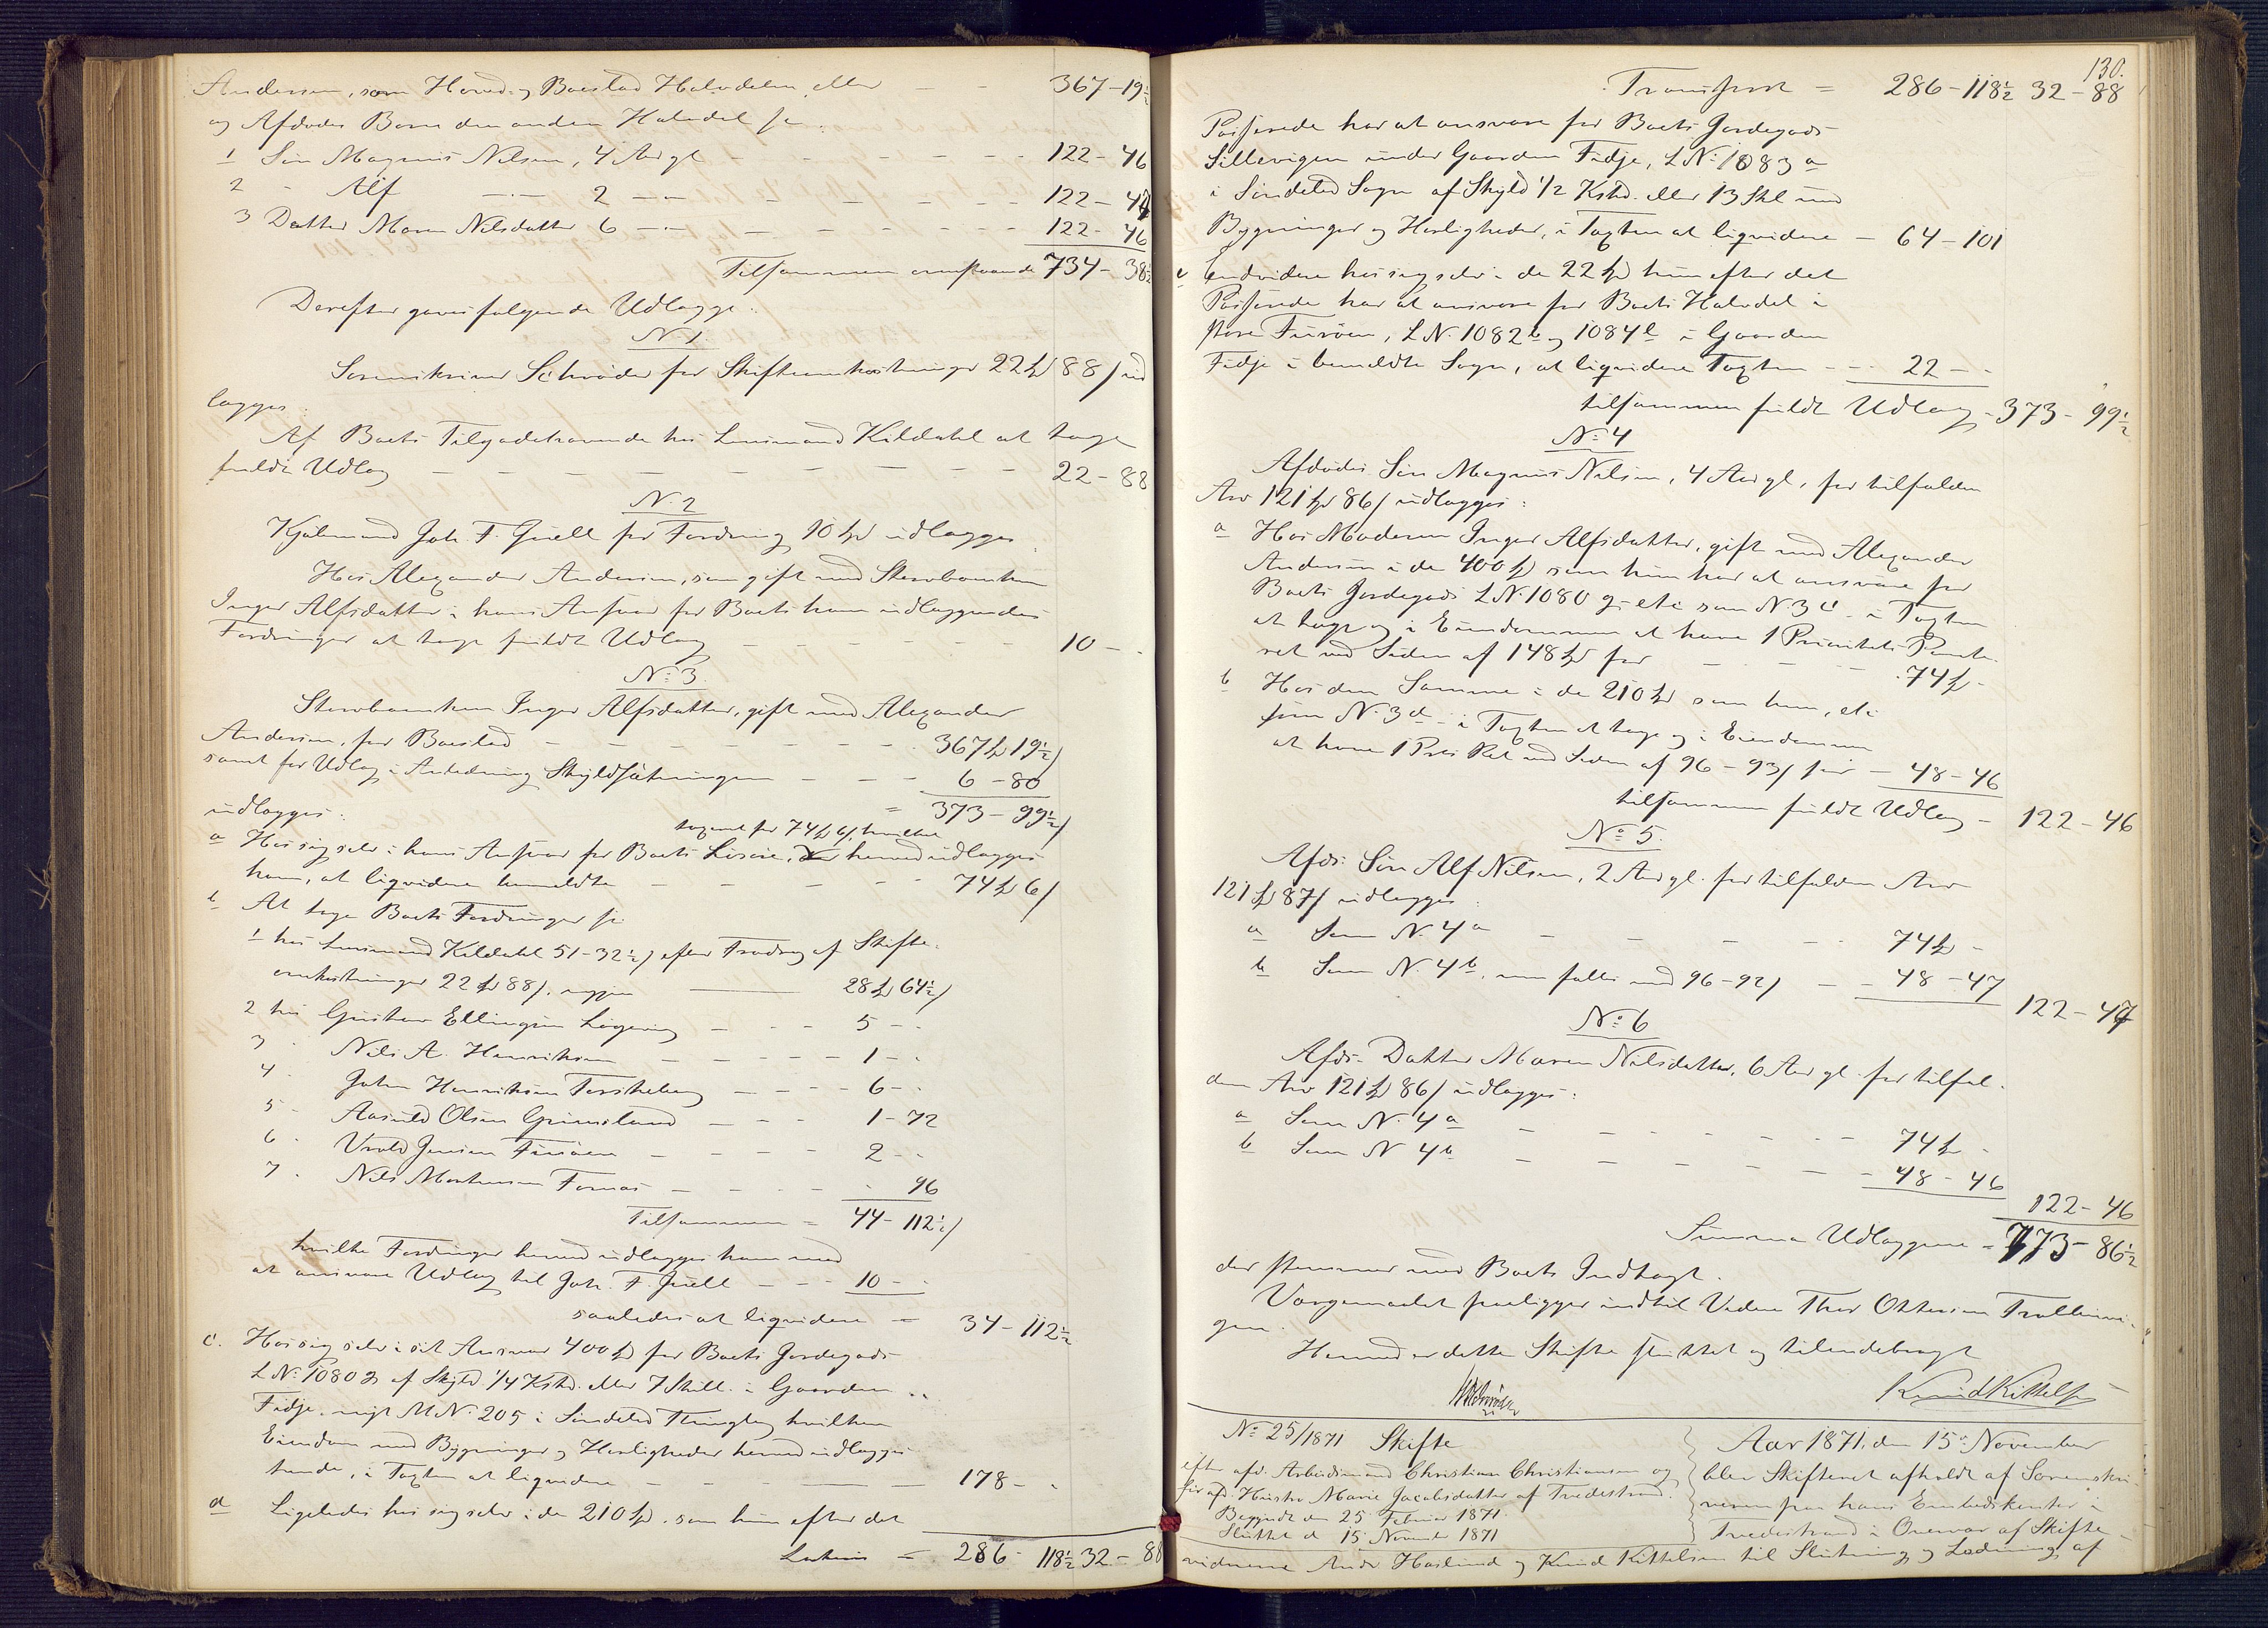 Andersen, som Hoved og Boeslod Halvdelen eller — — 367-19½
og Afdødes Børn den anden Halvdel je:
1 Søn Magnus Nilsen, 4 Aar gl — — 122-46
2 - Alf —"— 2 —"— — 122-47
3 Datter Maren Nilsdatter 6 —"— — 122-46
Tilsammen ovenstaaende 734-38½
Derefter gjøres følgende Udlægge:
N. 1.
Sorenskriver Schrøder for Skifteomkostninger 22 Spd 88 s ud
lægges:
Af Boets Tilgodehavende hos Lensmand Kildahl at tage
fuldt Udlæg — — 22-88
N. 2
Kjøbmand Joh. F. Juell for Fordring 10 Spd udlægges
Hos Alexander Andersen, som gift med Stervboenken
Inger Alfsdatter i hans Ansvar for Boets ham udlæggendes
Fordringer at tage fuldt Udlæg — — 10 - -
N: 3.
Stervboenken Inger Alfsdatter, gift med Alexander
Andersen, for Boeslod — — 367 Spd 19½ s
samt for Udlæg i Anledning Skyldsætningen — — 6-80
udlægges: = 373-99½ s
taxeret for 74 Spd 6 s, hvilket
a Hos sig selv i hans Ansvar for Boets Løsøre, hermed udlægges
ham, at liqvidere bemeldte — — 74 Spd 6 s
b At tage Boets Fordringer je:
1 hos Lensmand Kildahl 51-32½ s efter Fradrag af Skifte-
omkostninger 22 Spd 88 s, — 28 Spd 64½ s
2 hos Gustav Ellingsen Løgering — — 5 - -
3 - Nils A. Henriksen — — 1 - -
4 - John Henriksen Torskeberg — — 6 - -
5 - Aasuld Olsen Grimsland — — 1-72
6 - Vrold Jensen Furøen — — 2 - -
7 - Nils Mortensen Fornæs — — - 96
Tilsammen = 44-112½ s
hvilke Fordringer hermed udlægges ham med
at ansvare Udlæg til Joh. F. Juell — — 10 -
saaledes at liqvidere = 34-112½
c. Hos sig selv i sit Ansvar 400 Spd for Boets Jordegods
L N: 1080 g af Skyld 1/4 Kshd. eller 7 Skill. i Gaarden
Fidje, nyt M N: 205 i Søndeled Thinglag hvilken
Eiendom med Bygninger og Herligheder hermed udlægges
hende, i Taxten at liqvidere — — 178 - -
d Ligeledes hos sig selv i de 210 Spd. som hun efter det
Lateris = 286-118½ 32-88
130.
Transport = 286-118½ 32-88
Passerede har at ansvare for Boets Jordegods
Sillevigen under Gaarden Fidje, L N: 1083 a
i Søndeled Sogn af Skyld 1/2 Kshd. eller 13 Skl med
Bygninger og Herligheder, i Taxten at liqvidere — 64-101
e endvidere hos sig selv i de 22 Spd hun efter det
Passerede har at ansvare for Boets Halvdel i
store Furøen, L N. 1082 b og 1084 b i Gaarden
Fidje i bemeldte Sogn, at liqvidere Taxten — — 22 - -
tilsammen fuldt Udlæg - 373-99½
N: 4
Afdødes Søn Magnus Nilsen, 4 Aar gl, for tilfalden
Arv 121 Spd 86 s udlægges:
a Hos Moderen Inger Alfsdatter, gift med Alexander
Andersen i de 400 Spd som hun har at ansvare for
Boets Jordegods L N: 1080 g etc som N. 3 c i Taxten
at tage og i Eiendommen at have 1 Prioritets Pante-
ret ved Siden af 148 Spd for — — 74 Spd -
b Hos den Samme i de 210 Spd som hun, etc
som N. 3 d i Taxten at tage og i Eiendommen
at have 1 Prior Ret ved Siden af 96-93 s for — 48-46
tilsammen fuldt Udlæg — 122-46
No 5.
Afds. Søn Alf Nilsen, 2 Aar gl. for tilfalden Arv
121 Spd 87 s udlægges:
a Som N. 4 a — — 74 Spd -
b Som N. 4 b, men falles med 96-92 s — — 48-47
122-47
N: 6
Afds. Datter Maren Nilsdatter, 6 Aar gl for tilfal-
den Arv 121 Spd 86 s udlægges:
a Som N. 4 a — — 74 Spd -
b Som N 4 b — — 48-46
122-46
Summa Udlæggene = 773-86½
der stemmer med Boets Indtægt.
Værgemaalet foreligger indtil Videre Thor Ottersen Trollervi-
gen.
Hermed er dette Skifte sluttet og tilendebragt
WSchrøder Knud Kittelsen
No 25/1871 Skifte
efter afd. Arbeidsmand Christian Christiansen og
før afd. Hustru Marie Jacobsdatter af Tvedestrand.
Begyndt den 25 Februar 1871.
Sluttet d 15 November 1871
Aar 1871, den 15de November
blev Skifteret afholdt af Sorenskri-
veren paa hans Embedskontor i
Tvedestrand i Overvær af Skifte-
vidnerne Andr Haslund og Knud Kittelsen til Slutning og Lodning af